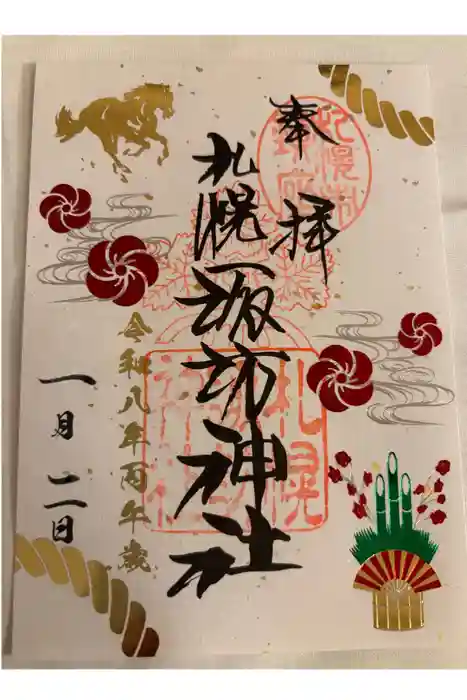 奉拝
札幌市
札幌諏訪神社
札幌
令和八年丙午歳
一月二日